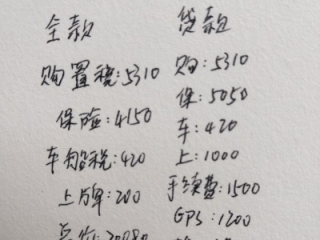 全款
购置税:5310
保险:4150
车船税:420
上牌:200
贷款
购:5310
保:5050
车:420
上:1000
手续费:1500
GPS:1200